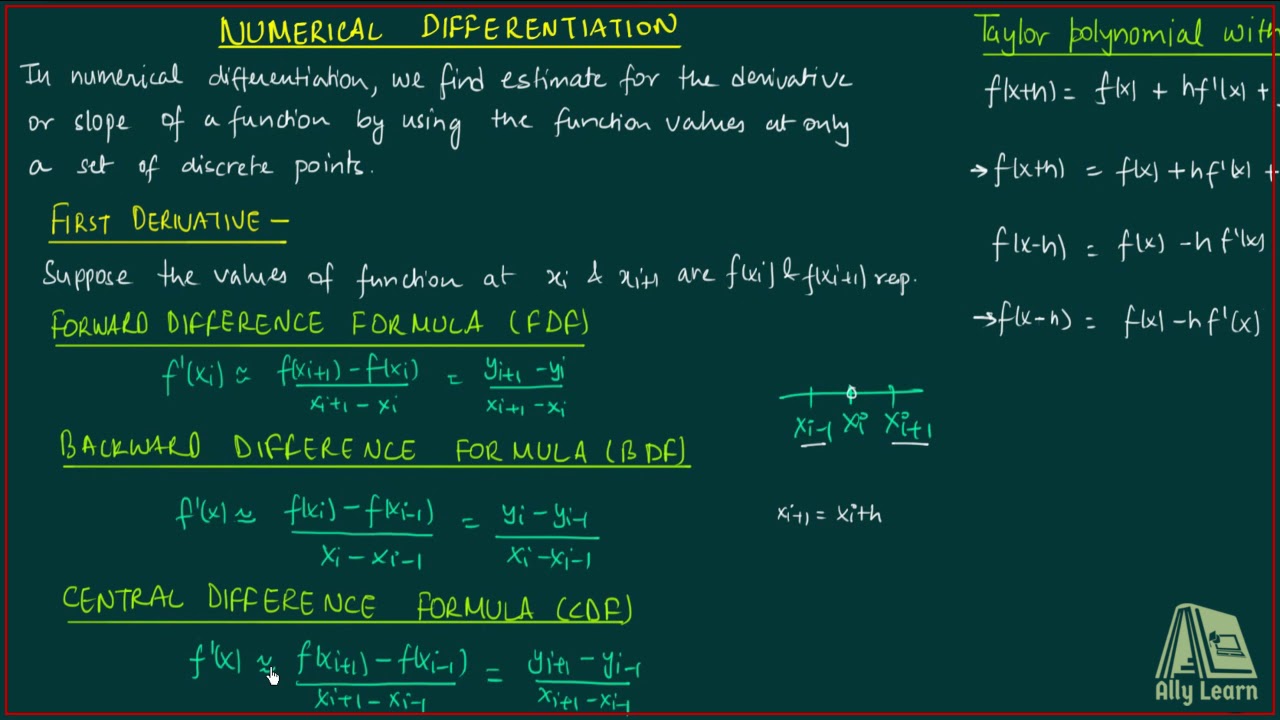 NUMERICAL DIFFERENTIATION
In numerical differentiation, we find estimate for the derivative
or slope of a function by using the function values at only
a set of discrete points.
FIRST DERIVATIVE –
Suppose the values of function at xi & xi+1 are f(xi) & f(xi+1) resp.
FORWARD DIFFERENCE FORMULA (FDF)
f'(xi) ≈ f(xi+1) – f(xi) / xi+1 – xi = yi+1 – yi / xi+1 – xi
BACKWARD DIFFERENCE FORMULA (BDF)
f'(x) ≈ f(xi) – f(xi-1) / xi – xi-1 = yi – yi-1 / xi – xi-1
CENTRAL DIFFERENCE FORMULA (CDF)
f'(x) ≈ f(xi+1) – f(xi-1) / xi+1 – xi-1 = yi+1 – yi-1 / xi+1 – xi-1
Taylor polynomial with
f(x+h) = f(x) + hf'(x) +
→ f(x+h) = f(x) + hf'(x) +
f(x-h) = f(x) – h f'(x)
→ f(x-h) = f(x) – hf'(x)
xi-1 xi xi+1
xi+1 = xi+h
Ally Learn